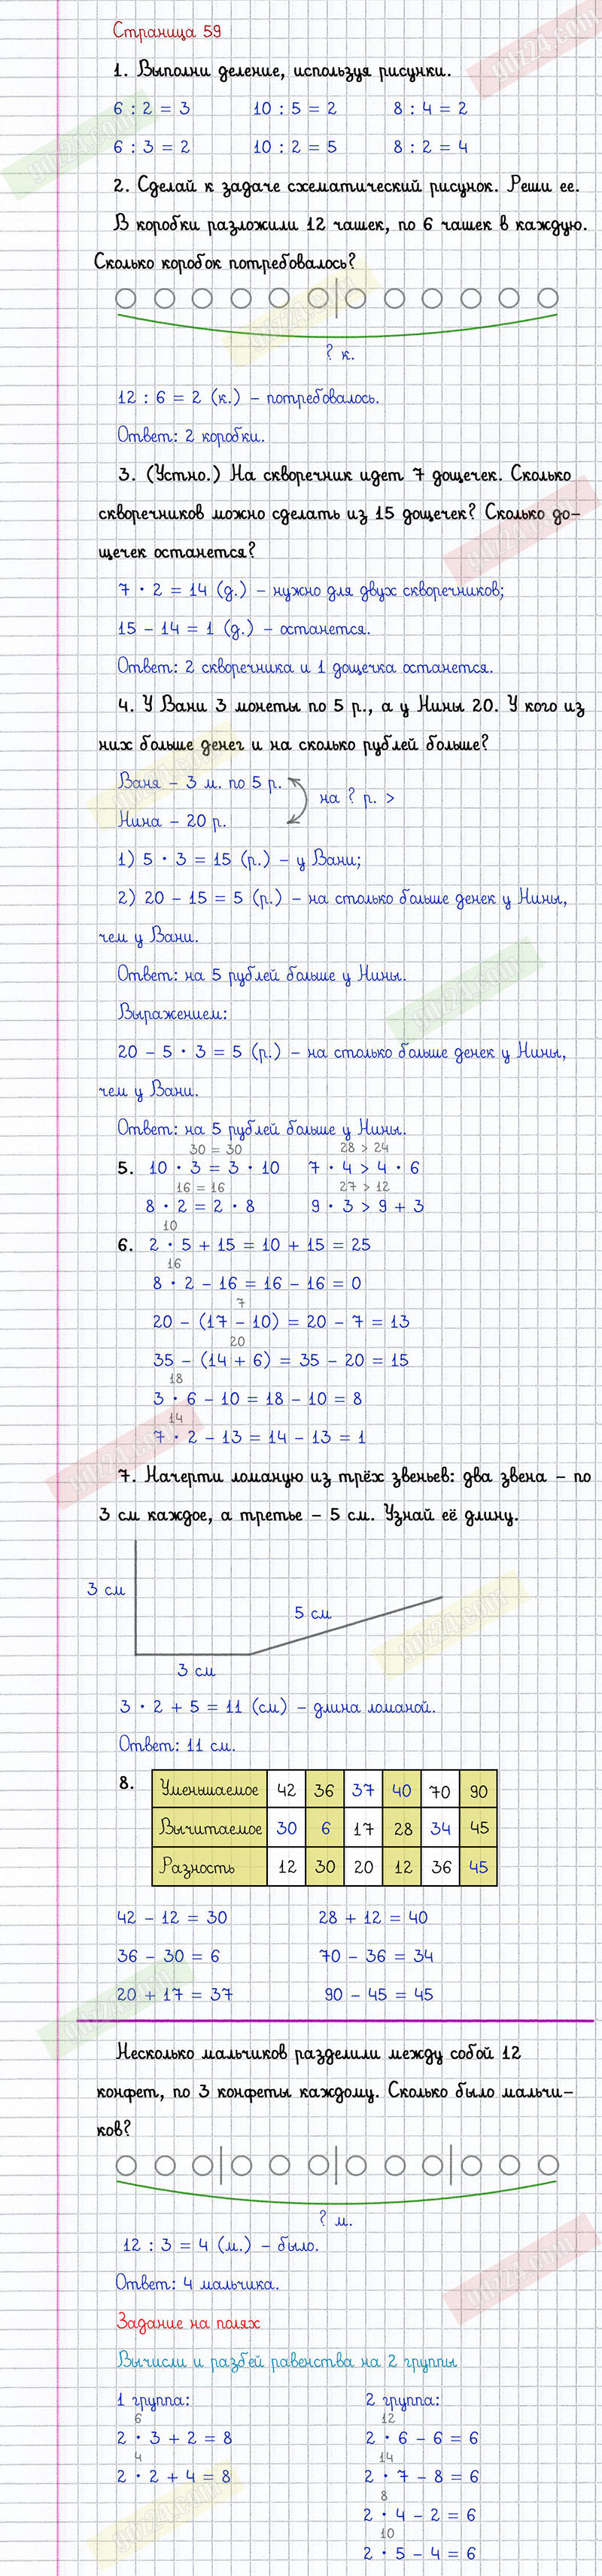 Страница 59
1. Выполни деление, используя рисунки.
6 : 2 = 3 10 : 5 = 2 8 : 4 = 2
6 : 3 = 2 10 : 2 = 5 8 : 2 = 4
2. Сделай к задаче схематический рисунок. Реши ее.
В коробки разложили 12 чашек, по 6 чашек в каждую.
Сколько коробок потребовалось?
? к.
12 : 6 = 2 (к.) – потребовалось.
Ответ: 2 коробки.
3. (Устно.) На скворечник идет 7 дощечек. Сколько
скворечников можно сделать из 15 дощечек? Сколько до-
щечек останется?
7 · 2 = 14 (д.) – нужно для двух скворечников;
15 – 14 = 1 (д.) – останется.
Ответ: 2 скворечника и 1 дощечка останется.
4. У Вани 3 монеты по 5 р., а у Нины 20. У кого из
них больше денег и на сколько рублей больше?
Ваня – 3 м. по 5 р.
на ? р. >
Нина – 20 р.
1) 5 · 3 = 15 (р.) – у Вани;
2) 20 – 15 = 5 (р.) – на столько больше денек у Нины,
чем у Вани.
Ответ: на 5 рублей больше у Нины.
Выражением:
20 – 5 · 3 = 5 (р.) – на столько больше денек у Нины,
чем у Вани.
Ответ: на 5 рублей больше у Нины.
30 = 30 28 > 24
5. 10 · 3 = 3 · 10 7 · 4 > 4 · 6
16 = 16 27 > 12
8 · 2 = 2 · 8 9 · 3 > 9 + 3
10
6. 2 · 5 + 15 = 10 + 15 = 25
16
8 · 2 – 16 = 16 – 16 = 0
7
20 – (17 – 10) = 20 – 7 = 13
20
35 – (14 + 6) = 35 – 20 = 15
18
3 · 6 – 10 = 18 – 10 = 8
14
7 · 2 – 13 = 14 – 13 = 1
7. Начерти ломаную из трёх звеньев: два звена – по
3 см каждое, а третье – 5 см. Узнай её длину.
3 см
5 см
3 см
3 · 2 + 5 = 11 (см) – длина ломаной.
Ответ: 11 см.
8.
Уменьшаемое 42 36 37 40 70 90
Вычитаемое 30 6 17 28 34 45
Разность 12 30 20 12 36 45
42 – 12 = 30 28 + 12 = 40
36 – 30 = 6 70 – 36 = 34
20 + 17 = 37 90 – 45 = 45
Несколько мальчиков разделили между собой 12
конфет, по 3 конфеты каждому. Сколько было мальчи-
ков?
? м.
12 : 3 = 4 (м.) – было.
Ответ: 4 мальчика.
Задание на полях
Вычисли и разбей равенства на 2 группы
1 группа: 2 группа:
6 12
2 · 3 + 2 = 8 2 · 6 – 6 = 6
4 14
2 · 2 + 4 = 8 2 · 7 – 8 = 6
8
2 · 4 – 2 = 6
10
2 · 5 – 4 = 6